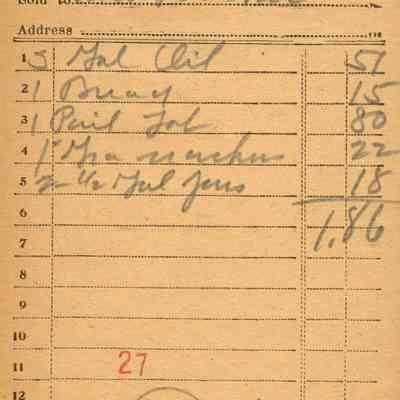 Sold to
Address
1 3 Gal Oil 51
2 1 Bread 15
3 1 Pail Tob 80
4 1 Gra 22
5 2 1/2 Gal Jars 18
6
7 1.86
8
9
10
11 27
12